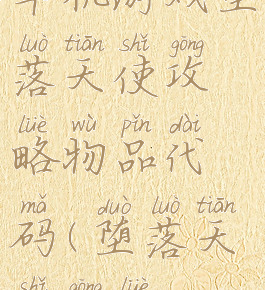 luò tiān shǐ gōng
落天使攻
lüè wù pǐn dài
略物品代
mǎ duò luò tiān
码(堕落天
shǐ gōng lüè